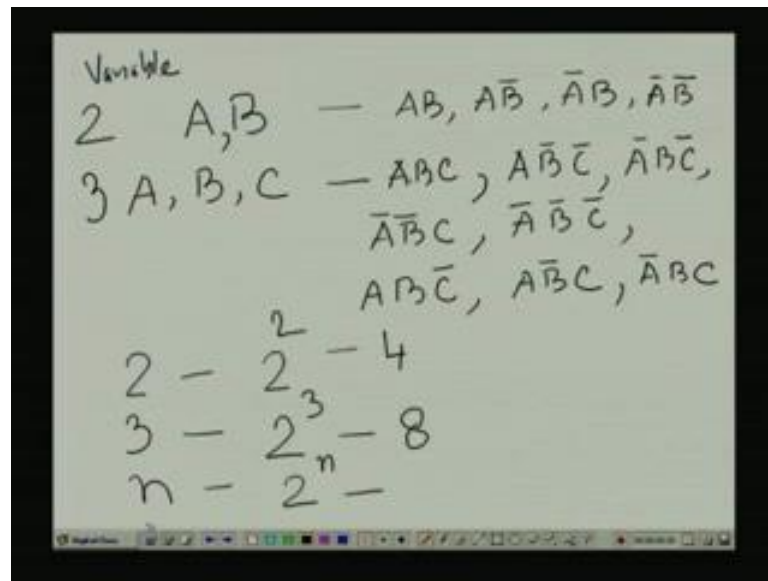 Variable
2 A,B — AB, AB̅, A̅B, A̅B̅
3 A, B, C — ABC, AB̅C̅, A̅BC̅,
A̅B̅C, A̅B̅C̅,
ABC̅, AB̅C, A̅BC
2 – 2² – 4
3 – 2³ – 8
n – 2ⁿ –